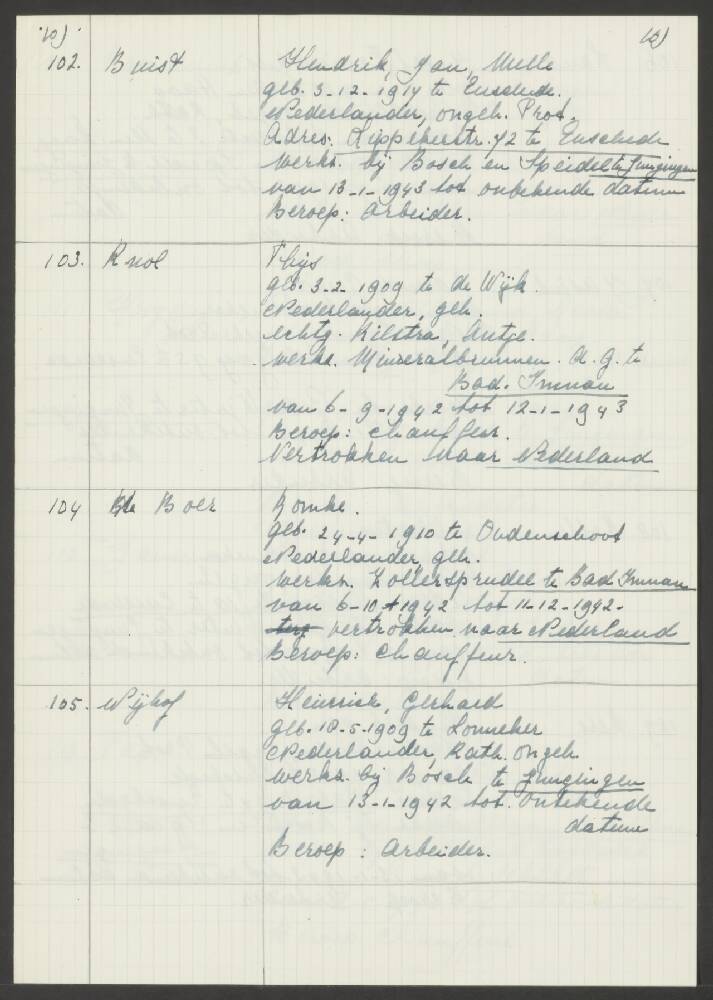 102. Buist Hendrik, Jan, Melle
geb. 3-12-1914 te Enschede.
Nederlander, ongeh. Prot.
Adres: Lippekerstr. 72 te Enschede
werkz. bij Bosch en Speidel te Jungingen
van 13-1-1943 tot onbekende datum
Beroep: Arbeider.
103. Knol Thijs
geb. 3-2-1909 te de Wijk.
Nederlander, geh.
echtg. Kilstra, Antje.
werkz. Mineralbrunnen. A.G. te
Bad. Imnau
van 6-9-1942 tot 12-1-1943
Beroep: chauffeur.
Vertrokken naar Nederland
104 de Boer Romke.
geb. 24-4-1910 te Oudenschoot
Nederlander, geh.
werkz. Zollersprudel te Bad Imnau
van 6-10-1942 tot 11-12-1942-
vertrokken naar Nederland
Beroep: chauffeur.
105. Wijhof Heinrich, Gerhard
geb. 18-5-1909 te Lonneker
Nederlander, Kath. ongeh.
werkz. bij Bosch te Jungingen
van 13-1-1942 tot. onbekende
datum
Beroep: Arbeider.